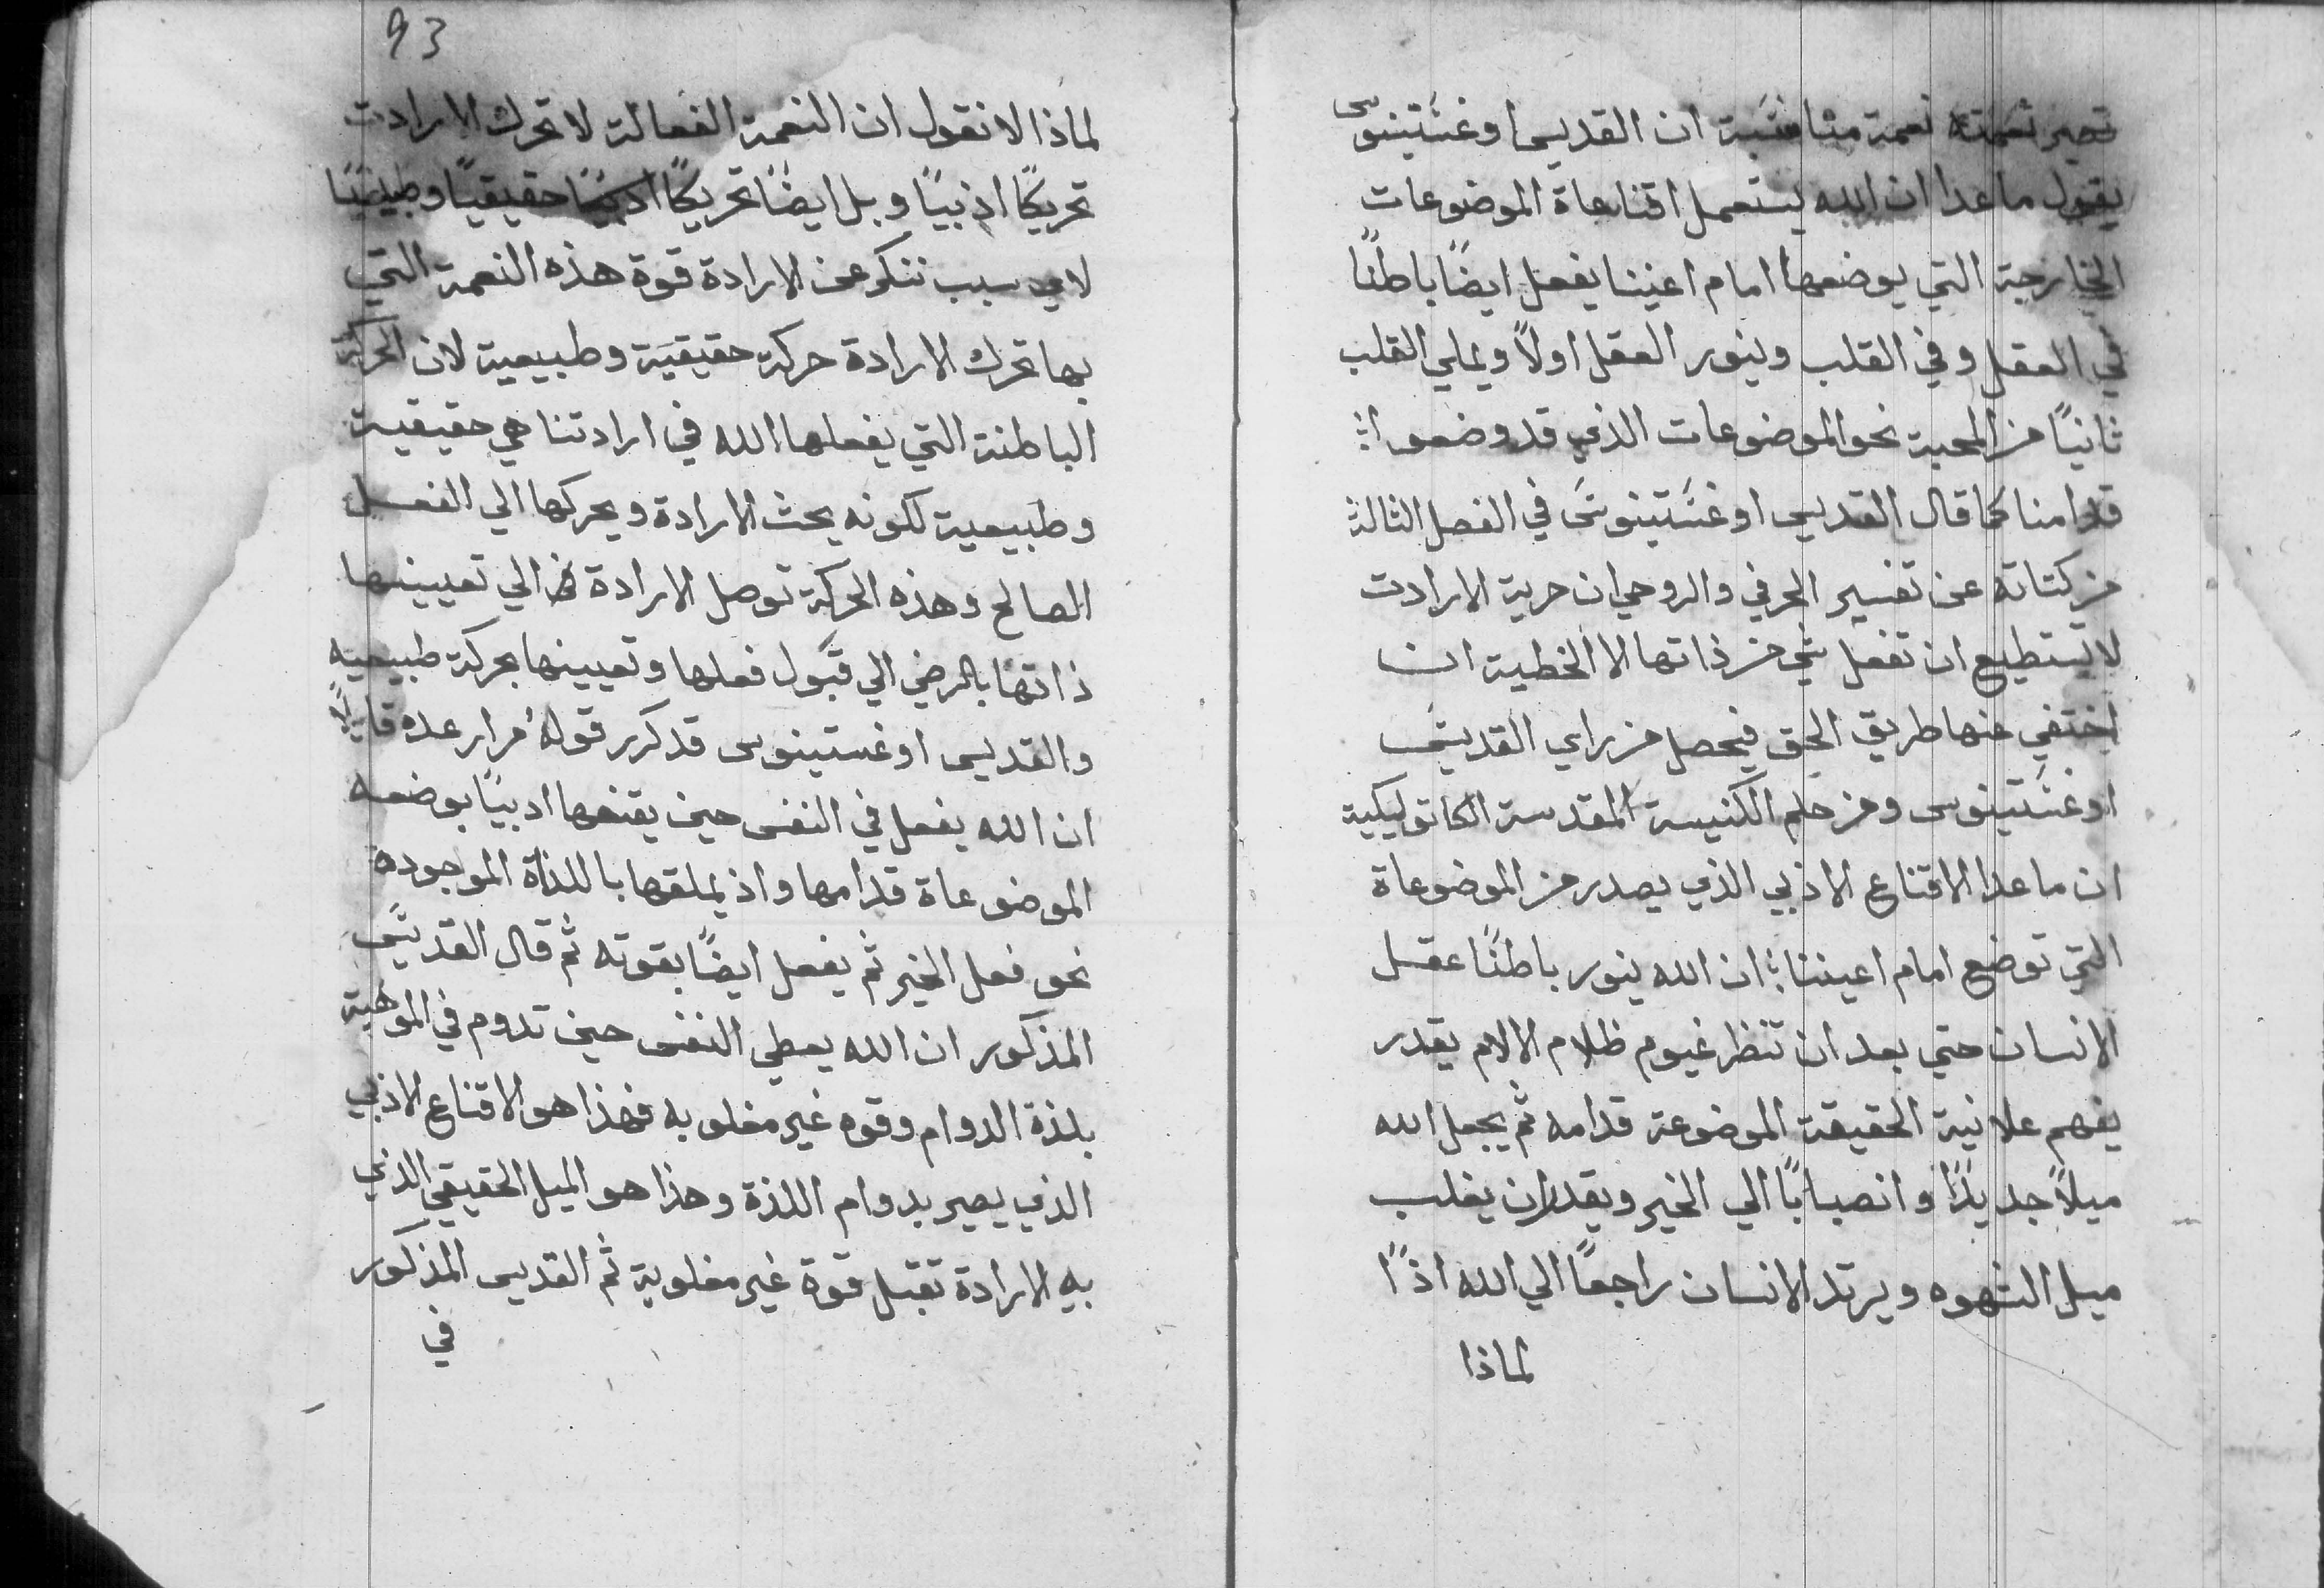 تصير نعمته نعمة مناسبة ان القديس اوغستينوس
يقول ما عدا ان الله يستعمل اقناعاة الموضوعات
الخارجة التي يوضعها امام اعيننا يفعل ايضًا باطنًا
في العقل وفي القلب وينور العقل اولًا ويملي القلب
ثانيًا من المحبة نحو الموضوعات الذي قد وضعوا
قدامنا كما قال القديس اوغستينوس في الفصل الثالث
من كتاته عن تفسير الحرفي والروحي ان حرية الارادت
لا تستطيع ان تفعل شي من ذاتها الا الخطية ان
اختفي عنها طريق الحق فيحصل من راي القديس
اوغستينوس ومن حلم الكنيسة المقدسة الكاتوليكية
ان ما عدا الاقناع الادبي الذي يصدر من الموضوعاة
التي توضع امام اعيننا ان الله ينور باطنًا عقل
الانسان حتي بعد ان تنظر غيوم ظلام الالام يقدر
يفهم علانية الحقيقة الموضوعة قدامه ثم يجعل الله
ميلًا جديدًا وانصبابًا الي الخير ويقدر ان يغلب
ميل الشهوه ويرتد الانسان راجعًا الي الله اذًا
لماذا
93
لماذا لا نقول ان النعمة الفعالة لا تحرك الارادت
تحريكًا ادبيًا و بل ايضًا تحريكًا حقيقيًا وطبيعيًا
لاي سبب ننكر عن الارادة قوة هذه النعمة التي
بها تحرك الارادة حركة حقيقية وطبيعية لان الحركة
الباطنة التي يفعلها الله في ارادتنا هي حقيقية
وطبيعية لكونه يحث الارادة ويحركها الي الفعل
الصالح وهذه الحركة توصل الارادة الي تعيينها
ذاتها بالرضي الي قبول فعلها وتعيينها بحركة طبيعية
والقديس اوغستينوس قد كرر قوله مرار عده قايلًا
ان الله يفعل في النفس حين يقنعها ادبيًا بوضعه
الموضوعاة قدامها واذ يملقها باللذاة الموجودة
نحو فعل الخير ثم يفعل ايضًا بقوته ثم قال القديس
المذكور ان الله يعطي النفس حين تدوم في الموهبة
بلذة الدوام وقوه غير مغلوبه فهذا هو الاقناع الادبي
الذي يصير بدوام اللذة وهذا هو الميل الحقيقي الذي
به الارادة تقبل قوة غير مغلوبة ثم القديس المذكور
في